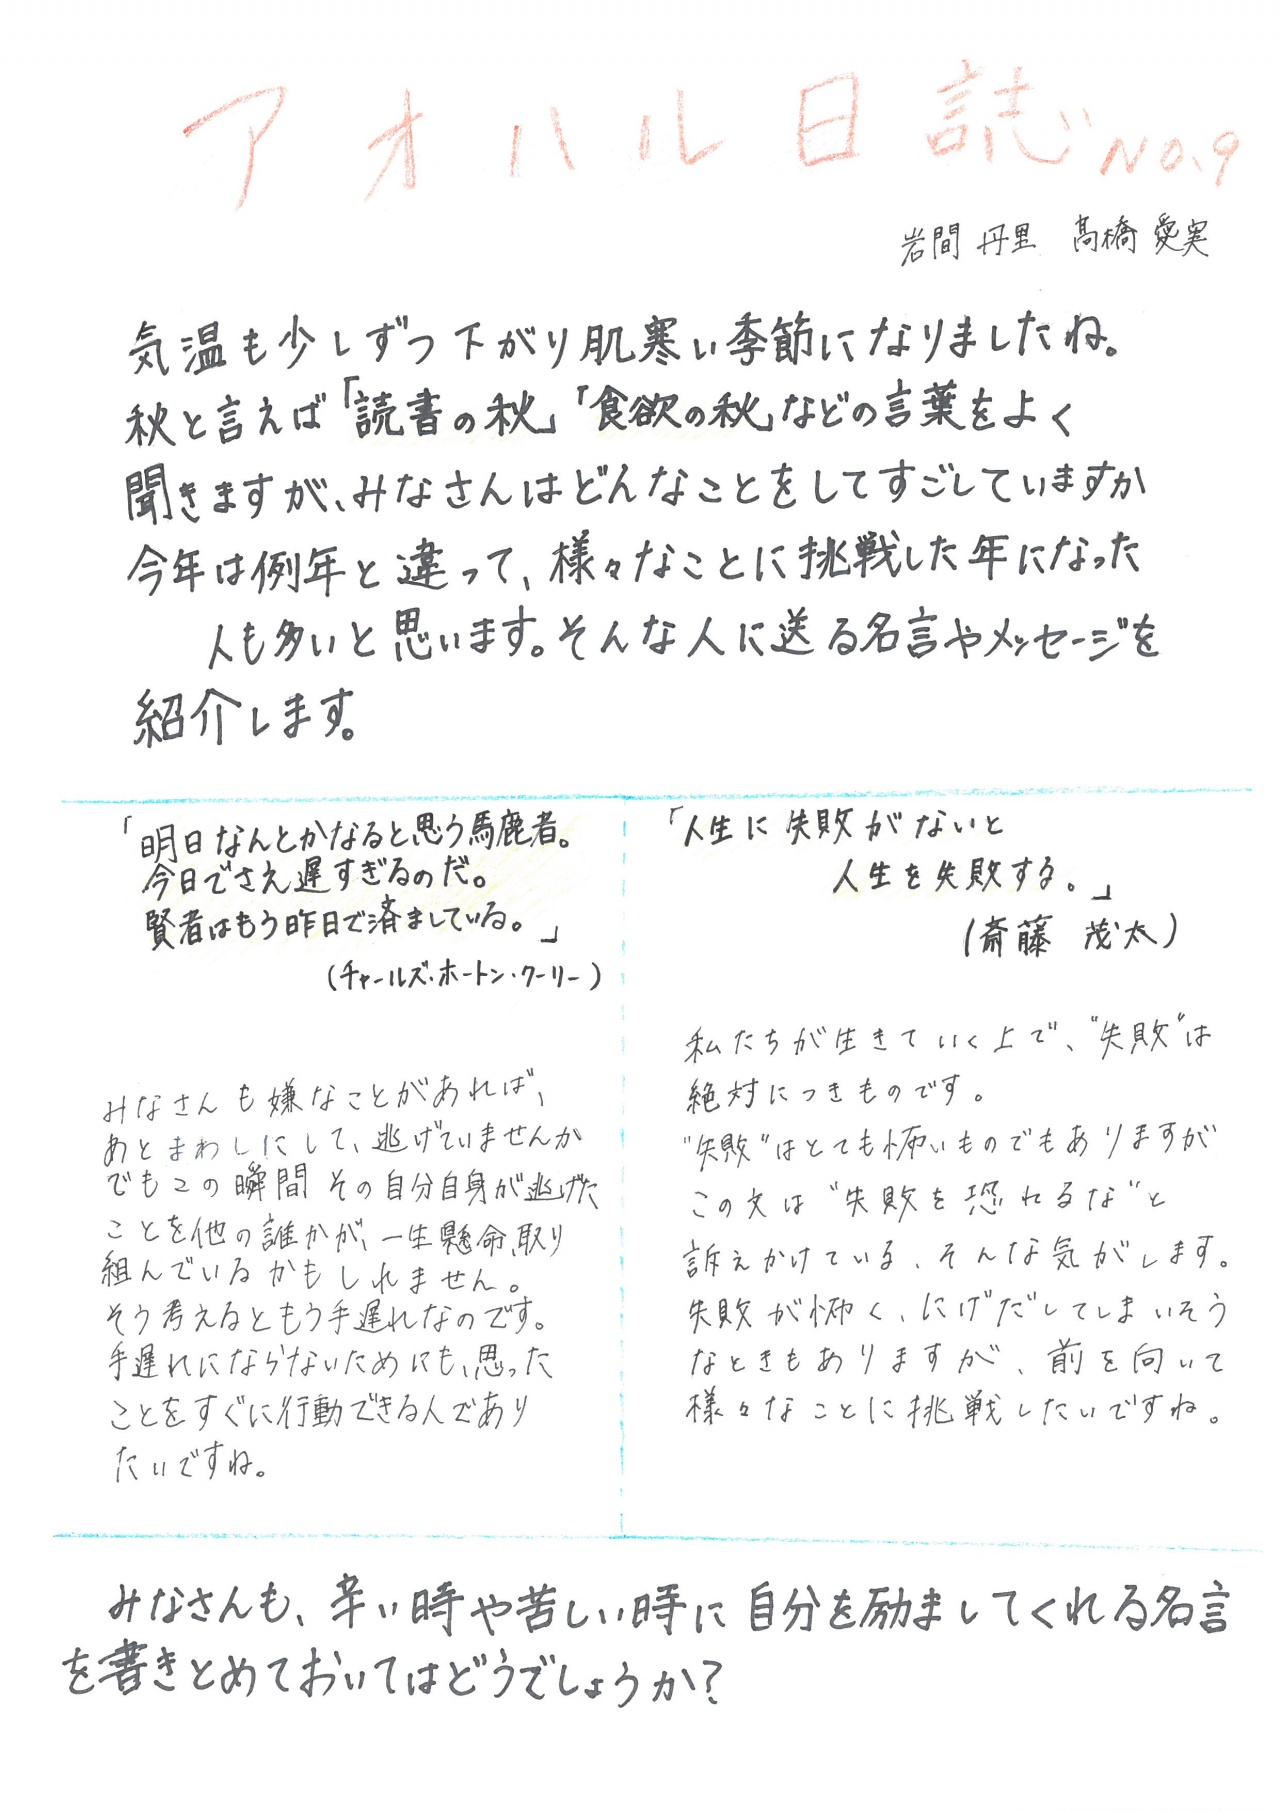 アオハル日誌 NO.9
岩間 丹里 髙橋 愛実
気温も少しずつ下がり肌寒い季節になりましたね。
秋と言えば「読書の秋」「食欲の秋」などの言葉をよく
聞きますが、みなさんはどんなことをしてすごしていますか
今年は例年と違って、様々なことに挑戦した年になった
人も多いと思います。そんな人に送る名言やメッセージを
紹介します。
「明日なんとかなると思う馬鹿者。
今日でさえ遅すぎるのだ。
賢者はもう昨日で済ましている。」
(チャールズ・ホートン・クーリー)
みなさんも嫌なことがあれば、
あとまわしにして、逃げていませんか
でもこの瞬間その自分自身が逃げた
ことを他の誰かが、一生懸命、取り
組んでいるかもしれません。
そう考えるともう手遅れなのです。
手遅れにならないためにも、思った
ことをすぐに行動できる人であり
たいですね。
「人生に失敗がないと
人生を失敗する。」
(斎藤 茂太)
私たちが生きていく上で、"失敗"は
絶対につきものです。
"失敗"はとても怖いものでもありますが
この文は"失敗を恐れるな"と
訴えかけている、そんな気がします。
失敗が怖く、にげだしてしまいそう
なときもありますが、前を向いて
様々なことに挑戦したいですね。
みなさんも、辛い時や苦しい時に自分を励ましてくれる名言
を書きとめておいてはどうでしょうか?